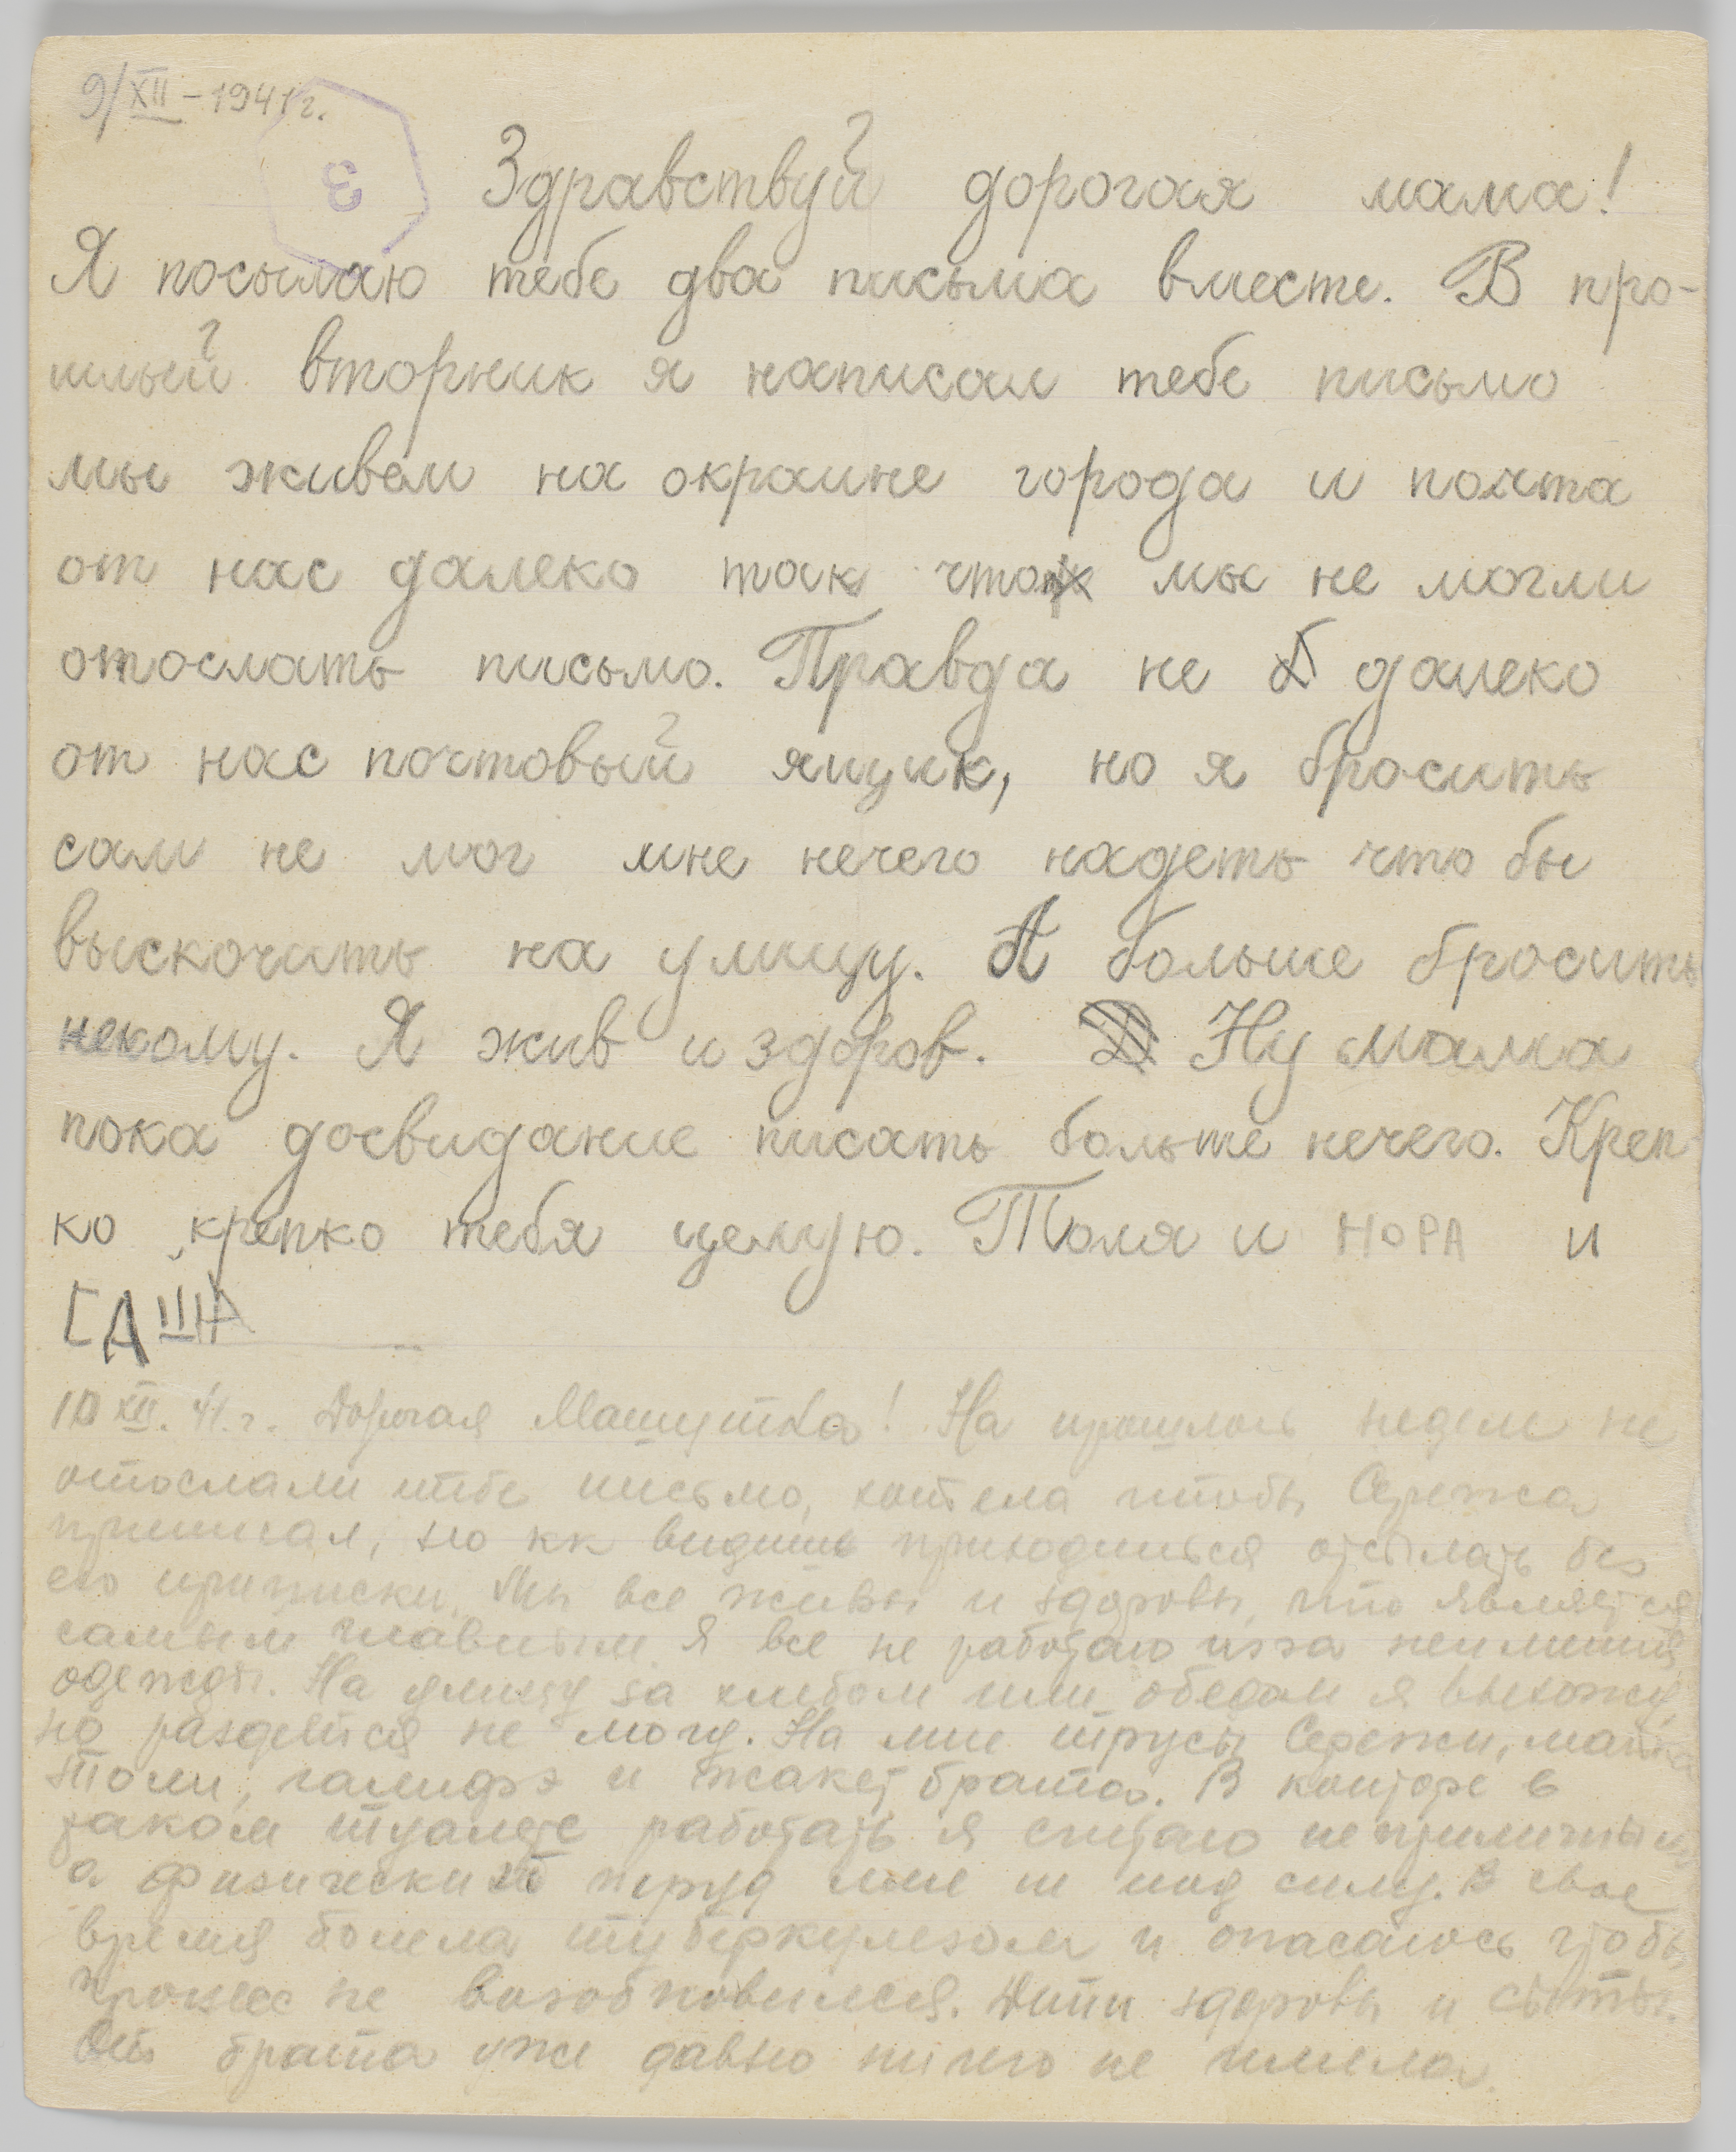 9/XII-1941г.
3
Здравствуй дорогая мама!
Я посылаю тебе два письма вместе. В про-
шлый вторник я написал тебе письмо
мы живем на окраине города и почта
от нас далеко так что мы не могли
отослать письмо. Правда не далеко
от нас почтовый ящик, но я бросить
сам не мог мне нечего надеть что бы
выскочить на улицу. А больше бросить
некому. Я жив и здоров. Ну мама
пока досвидание писать больше нечего. Креп-
ко крепко тебя целую. Толя и НОРА и
САША
10 XII. 41.г. Дорогая Машутка! На прошлой неделе не
отослали тебе письмо, хотела чтобы Сережа
приписал, но кк видишь приходиться отсылать без
его приписки. Мы все живы и здоровы, что является
самым главным. Я все не работаю изза неимения
одежды. На улицу за хлебом или обедом я выхожу,
но раздеться не могу. На мне трусы Сережи,
Толи, галифэ и жакет брата. В конторе в
таком туалете работать я считаю неприличным
а физический труд мне не под силу. В свое
время болела туберкулезом и опасаюсь чтобы
процесс не возобновился. Дети здоровы и сыты.
От брата уже давно ничего не имела.